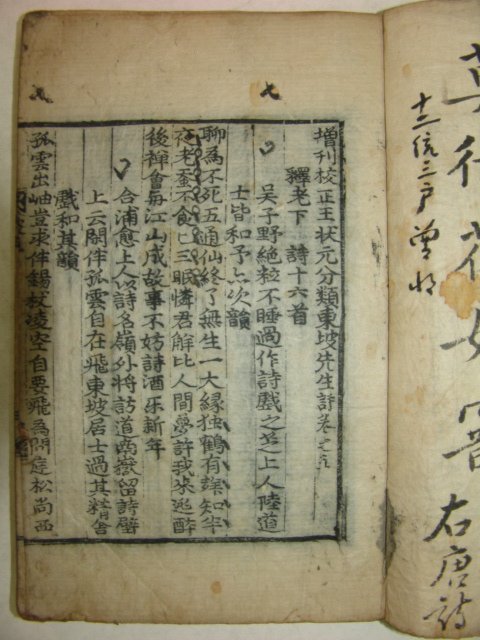 右唐詩
增刊校正王狀元分類東坡先生詩卷之
釋老下　詩十六首
吴子野絶粒不睡過作詩戲之芝上人陸道
士皆和予亦次韻
聊為不死五通仙終了無生一大縁独鶴有聲知半
夜老蚕不食已三眠憐君解比人間夢許我時逃醉
後禅會与江山成故事不妨詩酒乐新年
合浦愈上人以詩名嶺外將訪道南嶽留詩壁
上云閑伴孤雲自在飛東坡居士過其精舍
戯和其韻
孤雲出岫豈求伴錫杖凌空自要飛為問庭松尚西